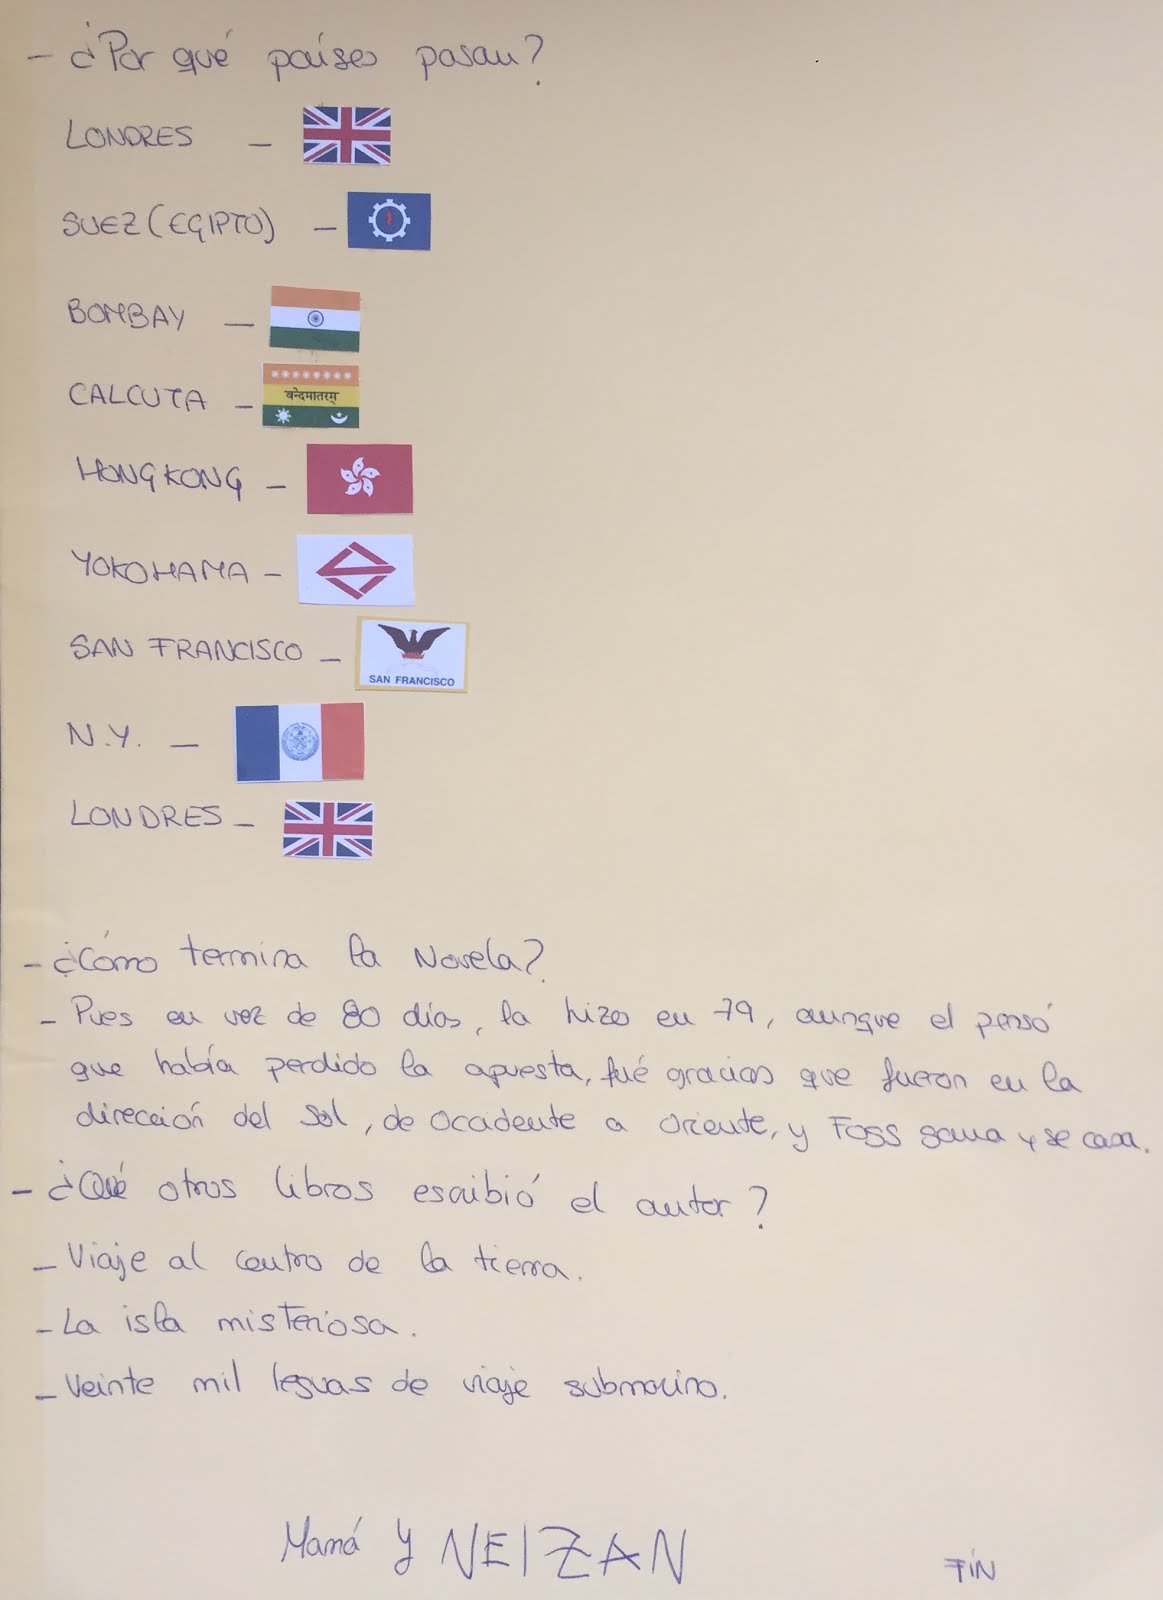 - ¿Por qué países pasan?
LONDRES -
SUEZ (EGIPTO) -
BOMBAY -
CALCUTA -
वन्देमातरम्
HONG KONG -
YOKOHAMA -
SAN FRANCISCO -
SAN FRANCISCO
N.Y. -
LONDRES -
- ¿Cómo termina la Novela?
- Pues en vez de 80 días, la hizo en 79, aunque el pensó
que había perdido la apuesta, fué gracias que fueron en la
dirección del Sol, de Occidente a Oriente, y Fogg gana y se casa.
- ¿Qué otros libros escribió el autor?
- Viaje al centro de la tierra.
- La isla misteriosa.
- Veinte mil leguas de viaje submarino.
Mamá y NEIZAN
FIN